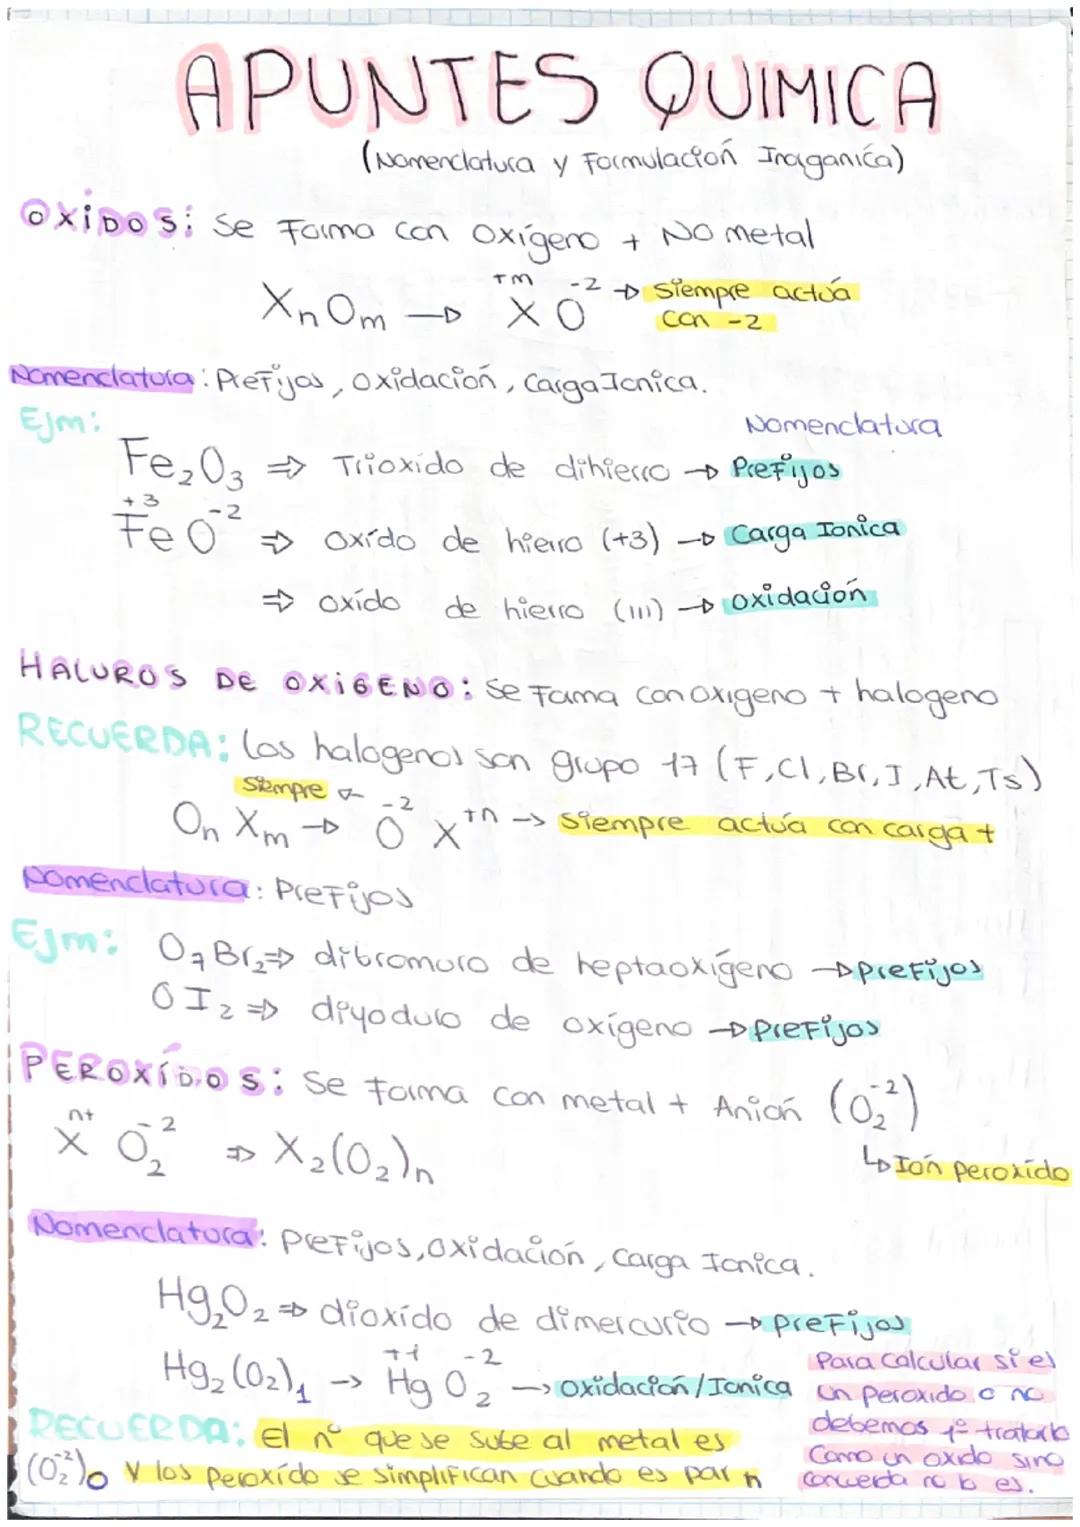 APUNTES QUIMICA
(Nomenclatura y Formulación Inorganica)
OXIDOS: Se Forma con Oxígeno + No metal
XnOm → X⁺ᵐ O⁻² → Siempre actúa
con -2
Nomenclatura: Prefijos, Oxidación, Carga Ionica.
Ejm:
Nomenclatura
Fe₂O₃ ⇒ Trioxido de dihierro → Prefijos
Fe⁺³ O⁻² ⇒ oxído de hierro (+3) → Carga Ionica
⇒ oxído de hierro (III) → oxidación
HALUROS DE OXIGENO: Se Forma con oxigeno + halogeno
RECUERDA: los halogenos son grupo 17 (F, Cl, Br, I, At, Ts)
Siempre ←
On Xm → O⁻² X⁺ⁿ → Siempre actúa con carga +
Nomenclatura: Prefijos
Ejm: O₇Br₂ ⇒ dibromuro de heptaoxígeno → prefijos
OI₂ ⇒ diyoduro de oxígeno → prefijos
PEROXÍDOS: Se forma con metal + Anión (O₂⁻²)
↳ Ión peroxído
Xⁿ⁺ O₂⁻² ⇒ X₂(O₂)n
Nomenclatura: Prefijos, oxidación, Carga Ionica.
Hg₂O₂ ⇒ dioxído de dimercurio → prefijos
Hg₂(O₂)₁ → Hg⁺¹ O₂⁻² → oxidación/Ionica
Para calcular si es
un peroxido o no
debemos 1º tratarlo
Como un oxido sino
concuerda no lo es.
RECUERDA: El nº que se sube al metal es
(O₂⁻²)o y los peroxído se simplifican cuando es par n